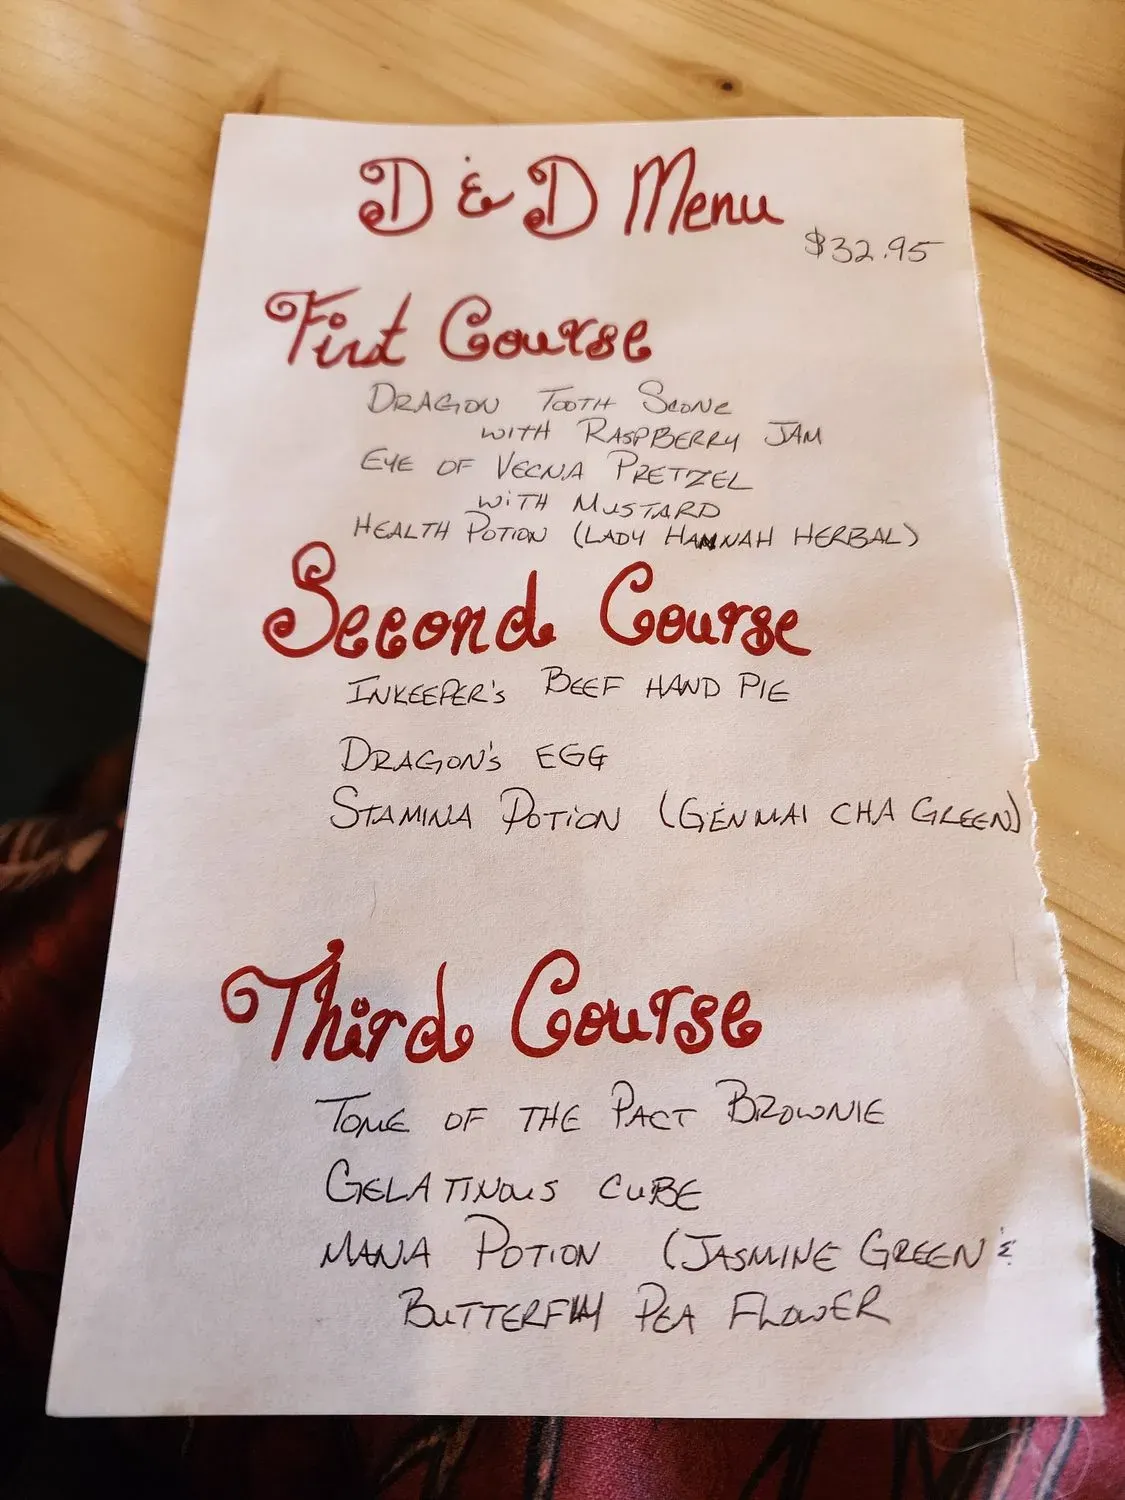 D & D Menu
$32.95
First Course
DRAGON TOOTH SCONE
WITH RASPBERRY JAM
EYE OF VECNA PRETZEL
WITH MUSTARD
HEALTH POTION (LADY HANNAH HERBAL)
Second Course
INKEEPER'S BEEF HAND PIE
DRAGON'S EGG
STAMINA POTION (GENMAI CHA GREEN)
Third Course
TOME OF THE PACT BROWNIE
GELATINOUS CUBE
MANA POTION (JASMINE GREEN &
BUTTERFLY PEA FLOWER